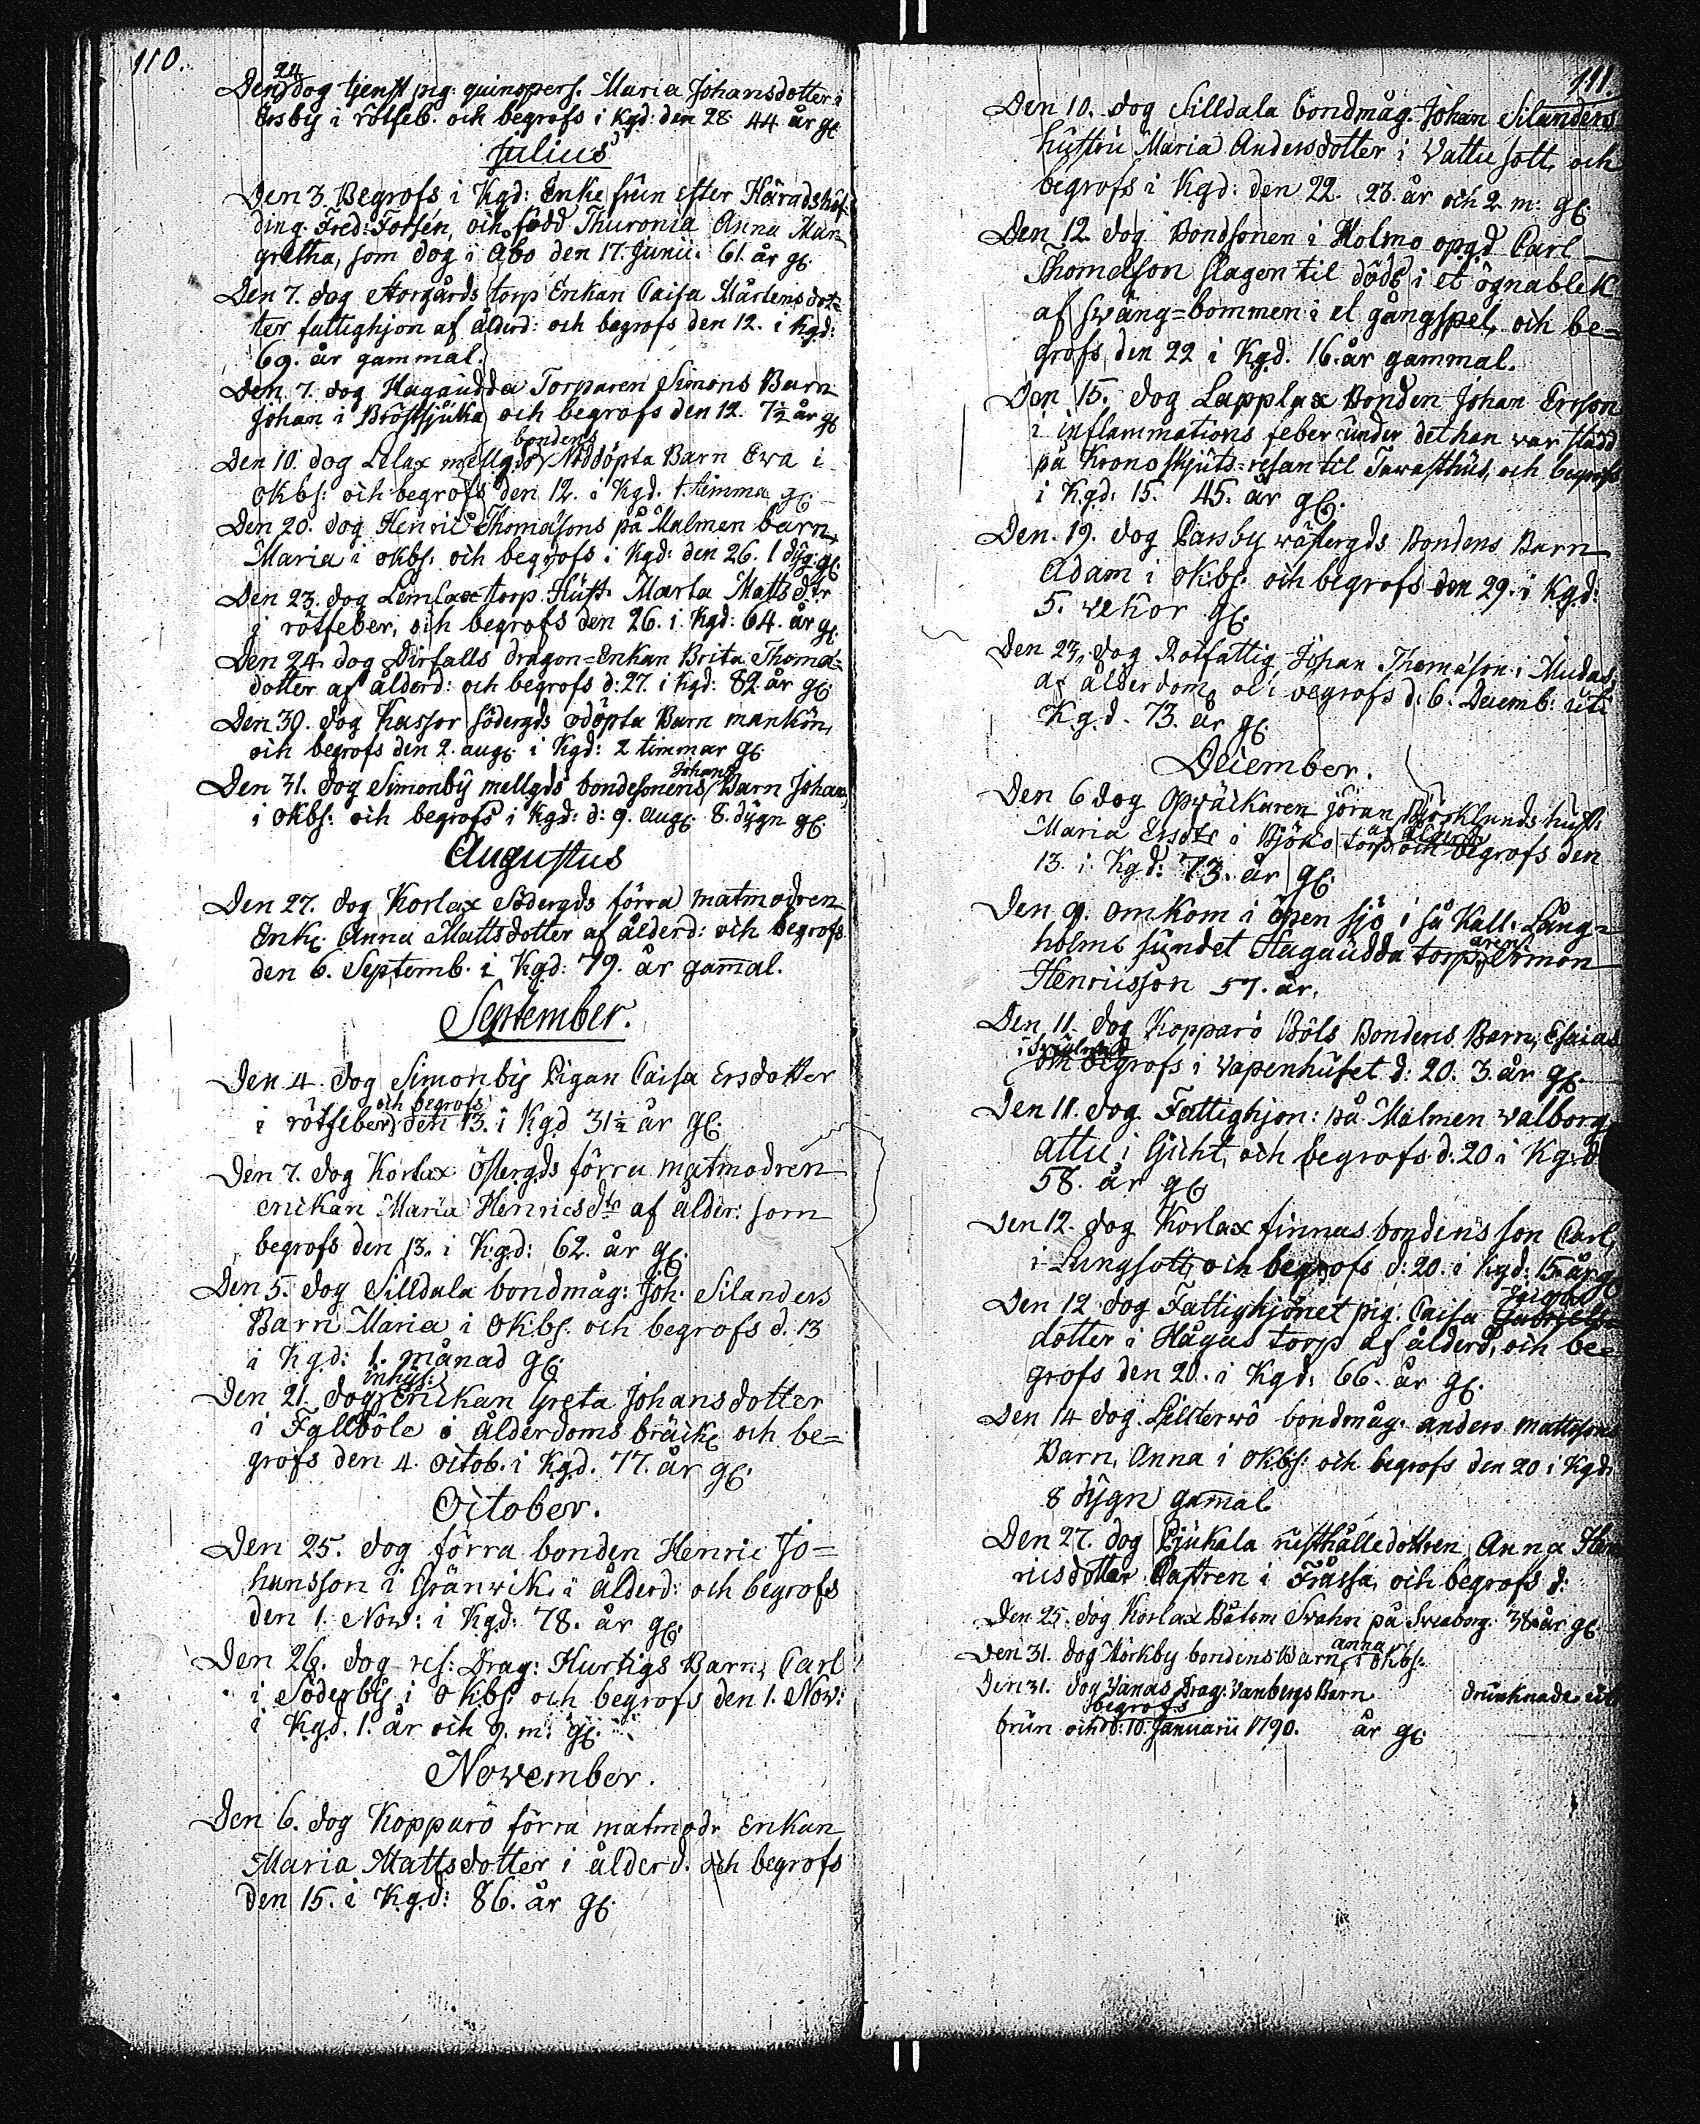 110.
Den 24 dog tjenst pig: quinspers. Maria Johansdotter i
Ersby i rötfeb. och begrofs i Kgd: den 28. 44 år gl:
Julius
Den 3. Begrofs i Kgd: Enke frun efter Häradshöf-
ding Fred: Forsén, och född Thuronia Anna Mar-
gretha, som dog i Åbo den 17. Junii. 61. år gl.
Den 7. dog Storgårds torp Enkan Caisa Mårtensdot=
ter fattighjon af ålderd: och begrofs den 12. i Kgd:
69. år gammal.
Den 7. dog Hagaudda Torparen Simons Barn
Johan i Bröstsjuka och begrofs den 12. 7½ år gl
Den 10. dog Lelax mellgds bondens Nöddöpta Barn Ewa i
okbs: och begrofs den 12. i Kgd. 1. timma gl:
Den 20. dog Henric Thomassons på Malmen barn
Maria i okbs: och begrofs i Kgd: den 26. 1 dyg: gl:
Den 23. dog Lemlax torp. Hust. Marta Matts dtr
i rötfeber, och begrofs den 26. i Kgd: 64. år gl.
Den 24. dog Dirfalls dragon=Enkan Brita Thomæ=
dotter af ålderd: och begrofs d: 27. i Kgd: 82 år gl:
Den 30. dog Kassor södergds odöpta Barn mankön,
och begrofs den 2. aug: i Kgd: 2 timmar gl:
Den 31. dog Simonby mellgds bondesonens Johans Barn Johan,
i okbs: och begrofs i Kgd: d: 9. aug: 8. dygn gl:
Augustus
Den 27. dog Korlax Södergds förra matmodren
Enk: Anna Mattsdotter af ålderd: och begrofs
den 6. Septemb. i Kgd: 79. år gam̄al.
September.
Den 4. dog Simonby Pigan Caisa Ersdotter
i rötfeber och begrofs den 13. i Kgd 31½ år gl:
Den 7. dog Korlax Östergds förra matmodren
enckan Maria Henricsdtr af ålder: som
begrofs den 13. i Kgd: 62. år gl:
Den 5. dog Silldala bondmåg: Joh: Silanders
Barn Maria i okbs: och begrofs d. 13
i Kgd: 1. månad gl:
Den 21. dog inhys: Enckan Greta Johansdotter
i Fallböle i ålderdoms bräck: och be=
grofs den 4. octob. i Kgd. 77. år gl:
October.
Den 25. dog förra bonden Henric Jo=
hansson i Gränwik, i ålderd: och begrofs
den 1. Now: i Kgd: 78. år gl:
Den 26. dog res: Drag: Hurtigs Barn, Carl
i Söderby i okbs: och begrofs den 1. Now:
i Kgd. 1. år och 9. m: gl:
November.
Den 6. dog Kopparö förra matmodr Enkan
Maria Mattsdotter i ålderd. och begrofs
den 15. i Kgd: 86. år gl:
111.
Den 10. dog Silldala bondmåg. Johan Silanders
hustru Maria Andersdotter i Vattusott, och
begrofs i Kgd: den 22. 23. år och 2 m: gl:
Den 12 dog Bondsonen i Holmo opgd Carl
Thomasson slagen til döds i et ögnableck
af swäng=bommen i et gångspel, och be=
grofs, den 22 i Kgd. 16. år gammal.
Den 15. dog Lapplax Bonden Johan Ersson
i inflammations feber under det han war stadd
på Kronoskjuts=resan til Tawasthus, och begrofs
i Kgd: 15. 45. år gl:
Den 19. dog Parsby wästergds Bondens Barn
Adam i okbs: och begrofs den 29. i Kgd:
5. wekor gl:
Den 23. dog Rotfattig Johan Thomasson i Mudas,
af ålderdom, oc begrofs d: 6. Decemb: uti
Kgd. 73. år gl:
December.
Den 6 dog Opwäckaren Jöran Björklunds hust:
Maria Ersdtr i Björkö torp af ålderd och begrofs den
13. i Kgd: 73. år gl:
Den 9. omkom i öpen sjö i så Kall: Lång=
holms sundet Hagaudda torparen Simon
Henricsson 57. år.
Den 11. dog Kopparö Böls Bondens Barn, Esaias
och begrofs i Vapenhuset d: 20. 3. år gl:
Den 11. dog Fattighjon: på Malmen Walborg
attu i Gicht, och begrofs d: 20 i Kgd
58. år gl
Den 12. dog Korlax finnas bondens son Carl,
i Lungsott, och begrofs d: 20. i Kgd: 15 år gl
Den 12 dog Fattighjonet pig: Caisa
dotter i Hågas torp af ålderd, och be=
grofs den 20. i Kgd: 66. år gl:
Den 14 dog Lillterwo bondmåg: anders mattssons
Barn, Anna i okbs: och begrofs den 20 i Kgd:
8 dygn gam̄al
Den 27. dog Pjukala rusthålledottren Anna Hen
ricsdotter Castren i Fråssa, och begrofs d:
Den 25. dog Korlax Båtsm Svahn på Sveaborg. 38. år gl:
Den 31. dog Mörkby bondens Barn anna i okbs:
Den 31. dog Vanas Drag: Vanbergs Barn drunknade ut
brun och begrofs d: 10. Januarii 1790. år gl: